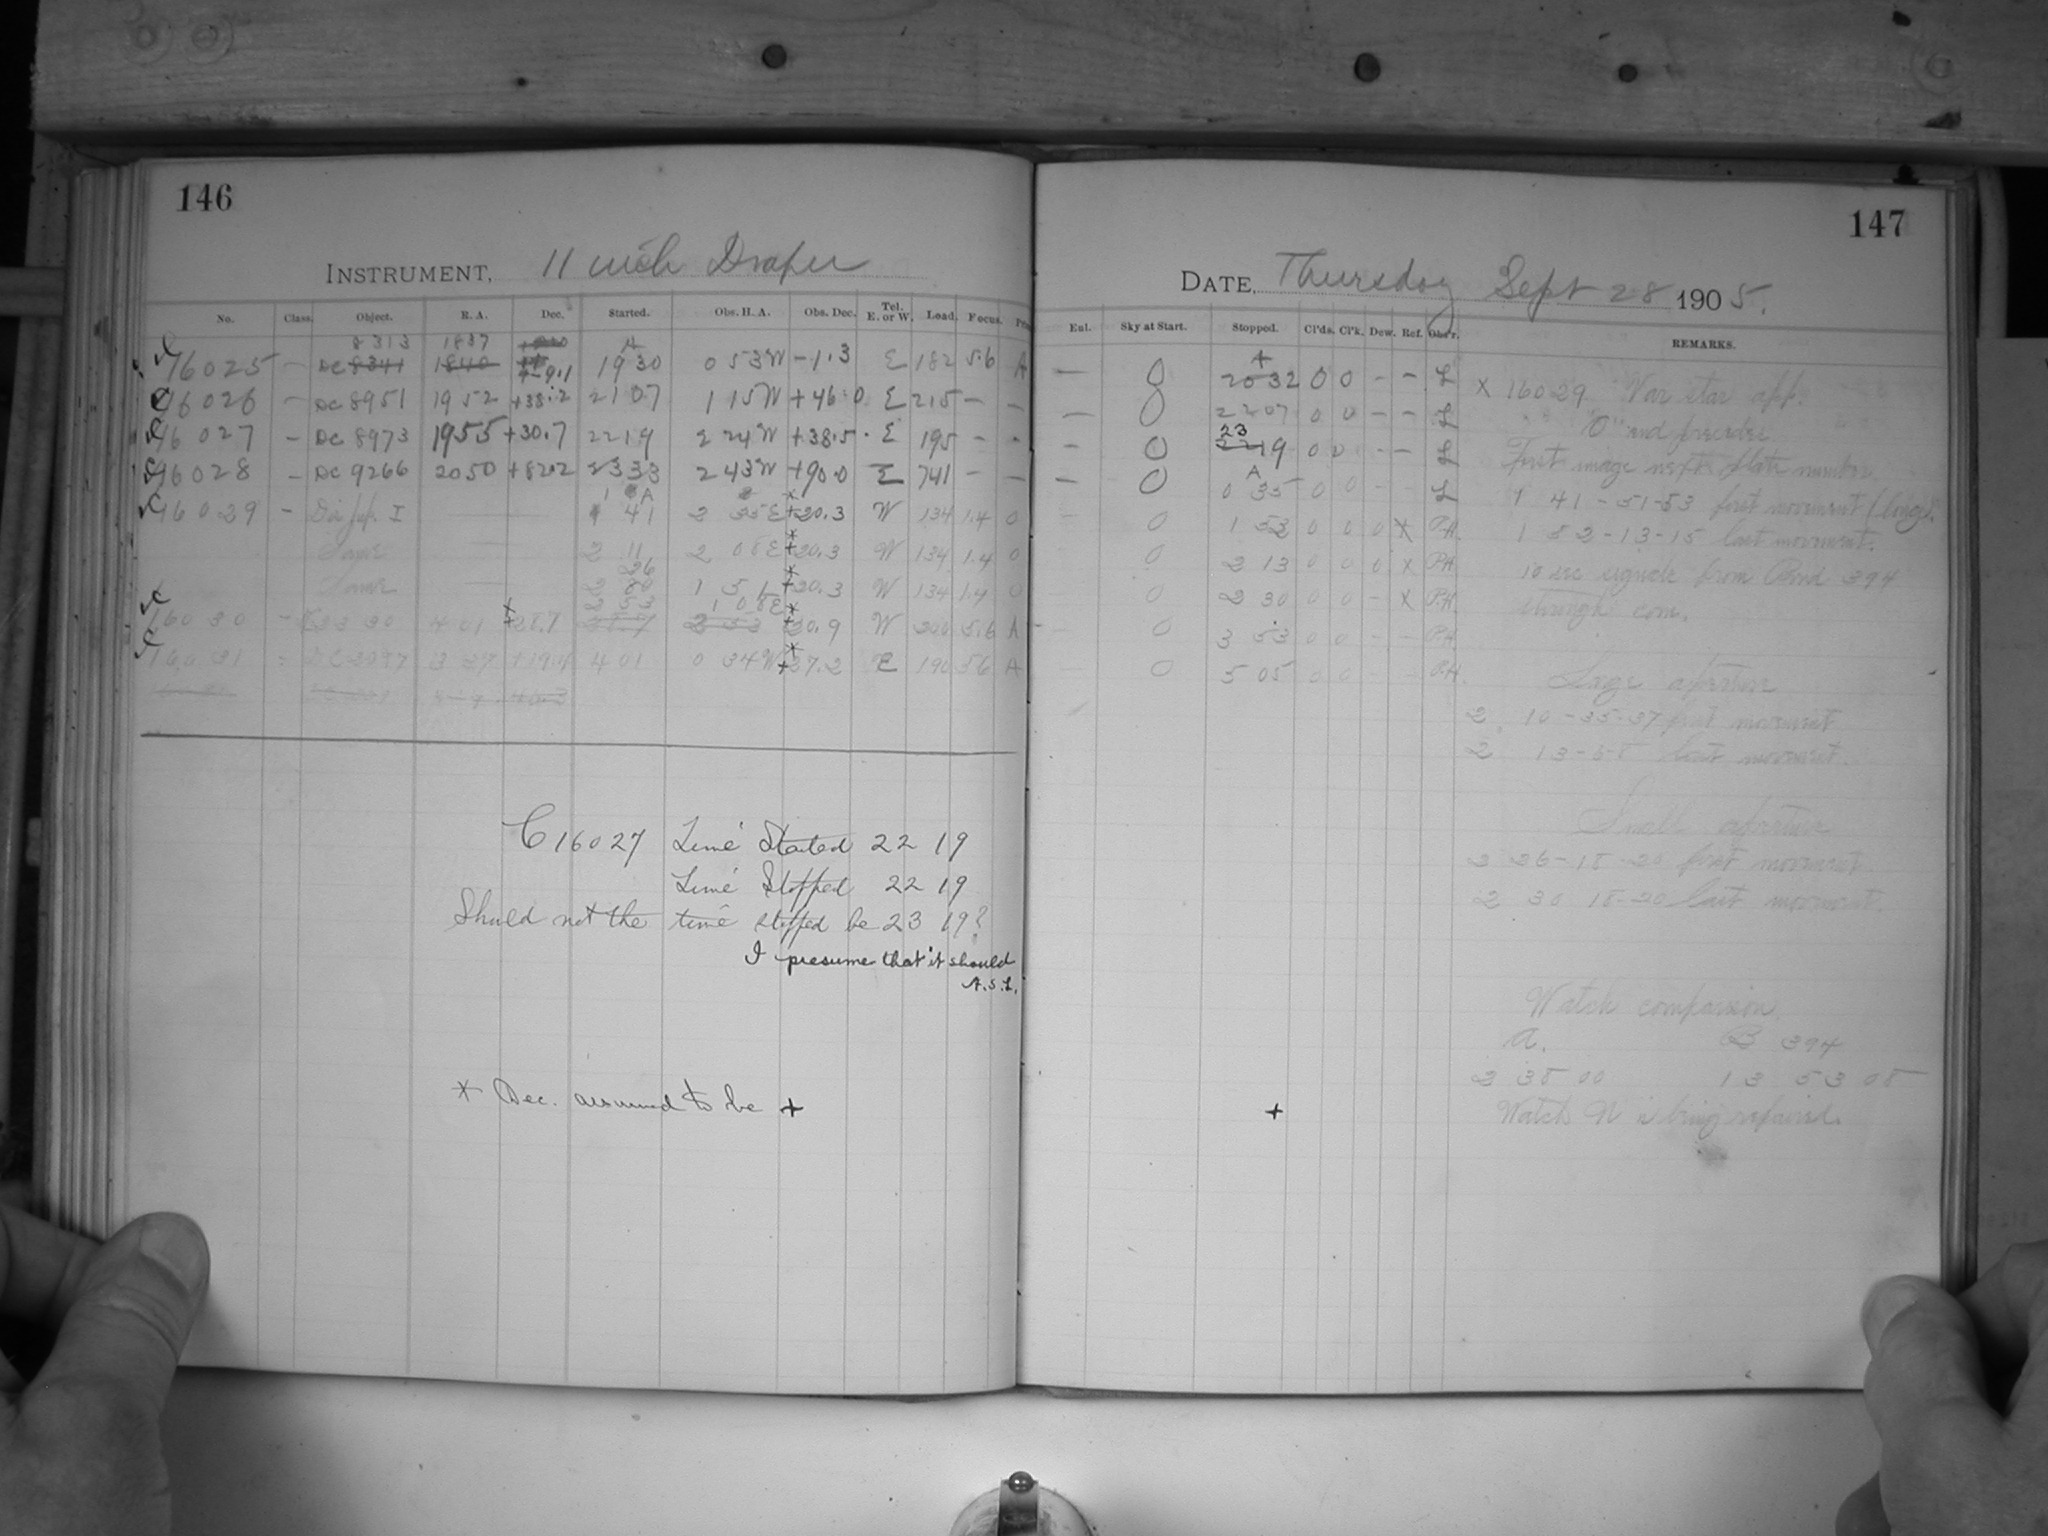 146
INSTRUMENT, 11 inch Draper
No. Class. Object. R. A. Dec. Started. Obs. H. A. Obs. Dec. Tel. E. or W. Load. Focus.
8313 1837
16025 – DC 8341 1840 +9.1 19 30 0 53 W –1.3 E 182 5.6 A
16026 – DC 8951 1952 +38.2 21 07 1 15 W +46.0 E 215 – –
16027 – DC 8973 1955 +30.7 22 19 2 24 W +38.5 E 195 – –
16028 – DC 9266 2050 +82.2 23 33 2 43 W +90.0 E 741 – –
16029 – I 1 41 2 35 E +20.3 W 134 1.4 0
Same — 2 11 2 08 E +20.3 W 134 1.4 0
Same — 2 26 1 51 +20.3 W 134 1.4 0
2 53 1 08 E
16030 – 4 01 W 200 5.6 A
16031 3 37 4 01 0 34 W +27.2 E 190 56 A
C 16027 Time Started 22 19
Time Stopped 22 19
Should not the time stopped be 23 19?
I presume that it should
A. S. L.
* Dec. assumed to be +
147
DATE, Thursday Sept 28 1905.
Eul. Sky at Start. Stopped. Cl'ds. Cl'k. Dew. Ref. Obs'r. REMARKS.
— 0 20 32 0 0 – – L
— 0 22 07 0 0 – – L
– 0 23 2219 0 0 – – L
– 0 0 35 0 0 – – L
0 1 53 0 0 0 X P.H.
0 2 13 0 0 0 X P.H.
0 2 30 0 0 – X P.H.
0 3 53 0 0 – – P.H.
0 5 05 0 0 – – P.H.
X 16029 Var star app.
"O" end precedes
First image next plate number
1 41 – 51-53 first movement (long).
1 52 – 13 – 15 last movement.
10 sec signals from Bond 394
through com.
Large aperture
2 10 – 35-37 first movement
2 13 – 5-8 last movement.
Small aperture
2 26 – 18 – 20 first movement
2 30 18-20 last movement.
Watch comparison
A. B 394
2 38 00 13 53 08
+ Watch N is being repaired.